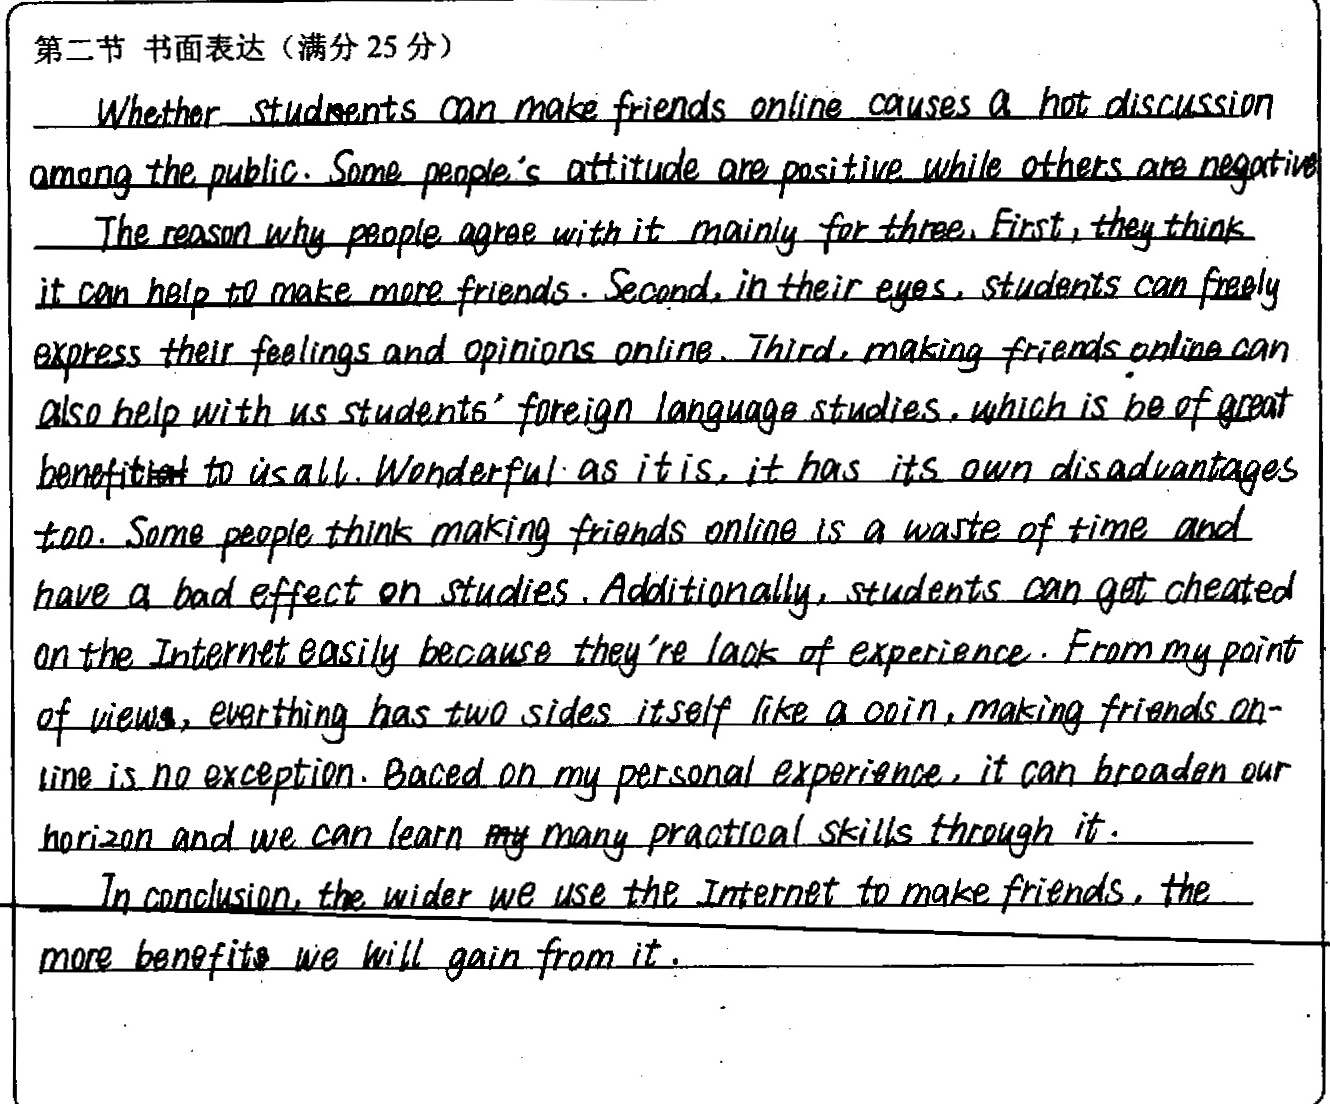 第二节 书面表达（满分 25 分）
Whether students can make friends online causes a hot discussion
among the public. Some people's attitude are positive while others are negative
The reason why people agree with it mainly for three. First, they think
it can help to make more friends. Second, in their eyes, students can freely
express their feelings and opinions online. Third, making friends online can
also help with us students' foreign language studies, which is be of great
benefit to us all. Wonderful as it is, it has its own disadvantages
too. Some people think making friends online is a waste of time and
have a bad effect on studies. Additionally, students can get cheated
on the Internet easily because they're lack of experience. From my point
of views, everthing has two sides itself like a coin, making friends on-
line is no exception. Baced on my personal experience, it can broaden our
horizon and we can learn many practical skills through it.
In conclusion, the wider we use the Internet to make friends, the
more benefits we will gain from it.